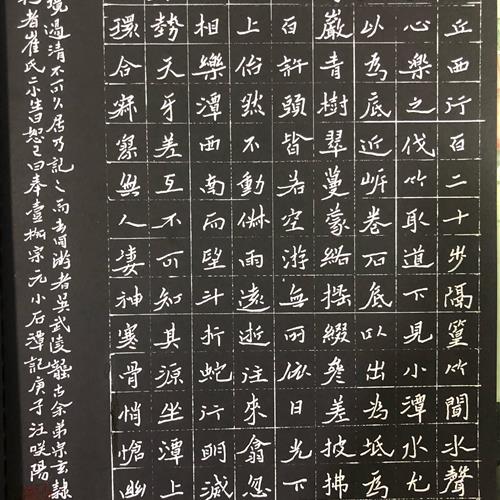 丘西行百二十步隔篁竹間水聲
心樂之伐竹取道下見小潭水尤
以為底近岸卷石底以出為坻為
巖青樹翠蔓蒙絡搖綴參差披拂
百許頭皆若空游無所依日光下
上佁然不動俶爾遠逝往來翕忽
相樂潭西南而望斗折蛇行明滅
勢犬牙差互不可知其源坐潭上
環合寂寥無人凄神寒骨悄愴幽
境過清不可久居乃記之而去同游者吳武陵龔古余弟宗玄隸
者崔氏二小生曰恕己曰奉壹柳宗元小石潭記庚子汪咲陽